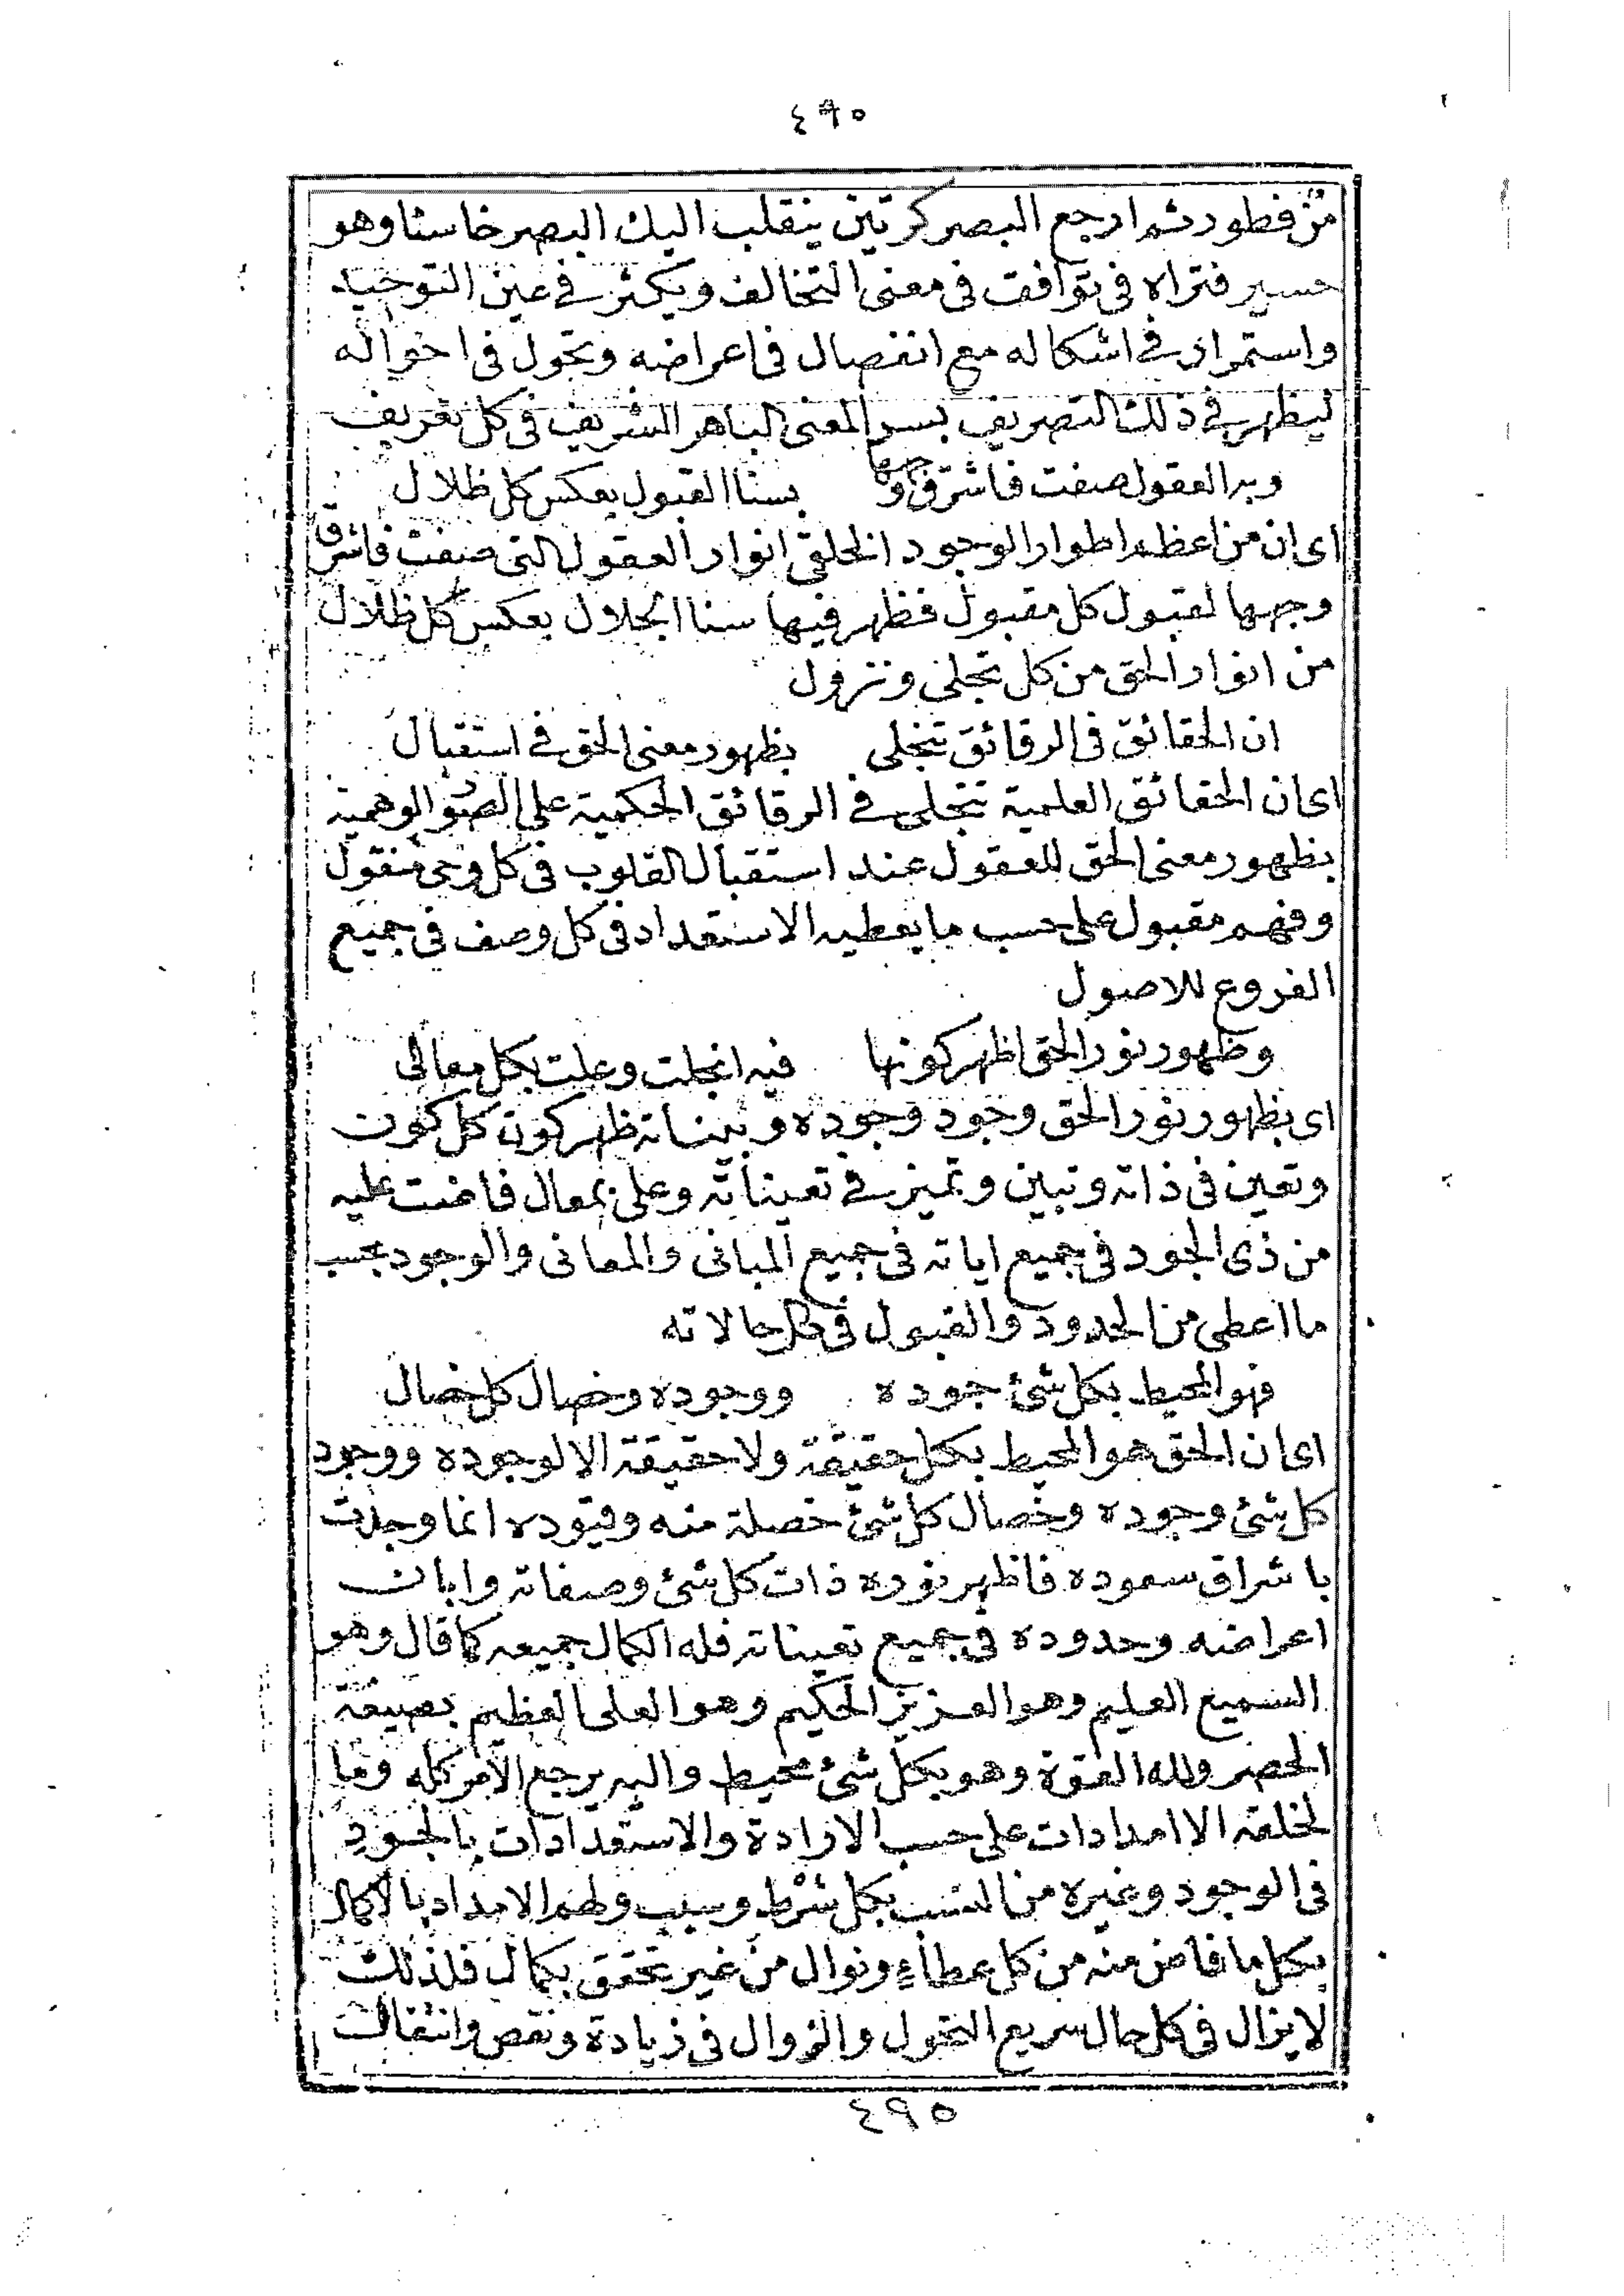 ٤٩٥
من فطور ثم ارجع البصر كرتين ينقلب اليك البصر خاسئا وهو
حسير فتراه في توافق في معنى التخالف وتكثر في عين التوحيد
واستمرار في اشكاله مع انفصال في اعراضه وتحول في احواله
ليظهر في ذلك التصريف بسر المعنى الباهر الشريف في كل تعريف
وبه العقول صفت فاشرق وجهها بسنا القبول بعكس كل ظلال
اى ان من اعظم اطوار الوجود الخلقى انوار العقول التى صفت فاشرق
وجهها لقبول كل مقبول فظهر فيها سنا الجلال بعكس كل ظلال
من انوار الحق من كل تجلى ونزول
ان الحقائق في الرقائق تنجلى بظهور معنى الحق في استقبال
اى ان الحقائق العلمية تنجلى في الرقائق الحكمية على الصور الوهمية
بظهور معنى الحق للعقول عند استقبال القلوب في كل وحى منقول
وفهم مقبول على حسب ما يعطيه الاستعداد في كل وصف في جميع
الفروع للاصول
وظهور نور الحق اظهر كونها فيه انجلت وعلت بكل معالى
اى بظهور نور الحق وجود وجوده وبيناته ظهر كون كل كون
وتعين في ذاته وتبين وتميز في تعيناته وعلى بمعال فاضت عليه
من ذى الجود في جميع اياته في جميع المبانى والمعانى والوجود بحسب
ما اعطى من الحدود والقبول في كل حالاته
فهو المحيط بكل شئ جوده ووجوده وخصال كل خصال
اى ان الحق هو المحيط بكل حقيقة ولا حقيقة الا لوجوده ووجود
كل شئ وجوده وخصال كل شئ خصلة منه وقيوده انما وجدت
باشراق سعوده فاظهر نوره ذات كل شئ وصفاته وابان
اعراضه وحدوده في جميع تعيناته فله الكمال جميعه كما قال وهو
السميع العليم وهو العزيز الحكيم وهو العلى العظيم بصيغة
الحصر ولله القوة وهو بكل شئ محيط واليه يرجع الامر كله وما
لخلقه الا امدادات على حسب الارادة والاستعدادات بالجود
في الوجود وغيره من النسب بكل شرط وسبب ولهم الامداد بالكمال
بكل ما فاض منه من كل عطاء ونوال من غير تحقق بكمال فلذلك
لا يزال في كل حال سريع التحول والزوال في زيادة ونقص وانتقال
٤٩٥